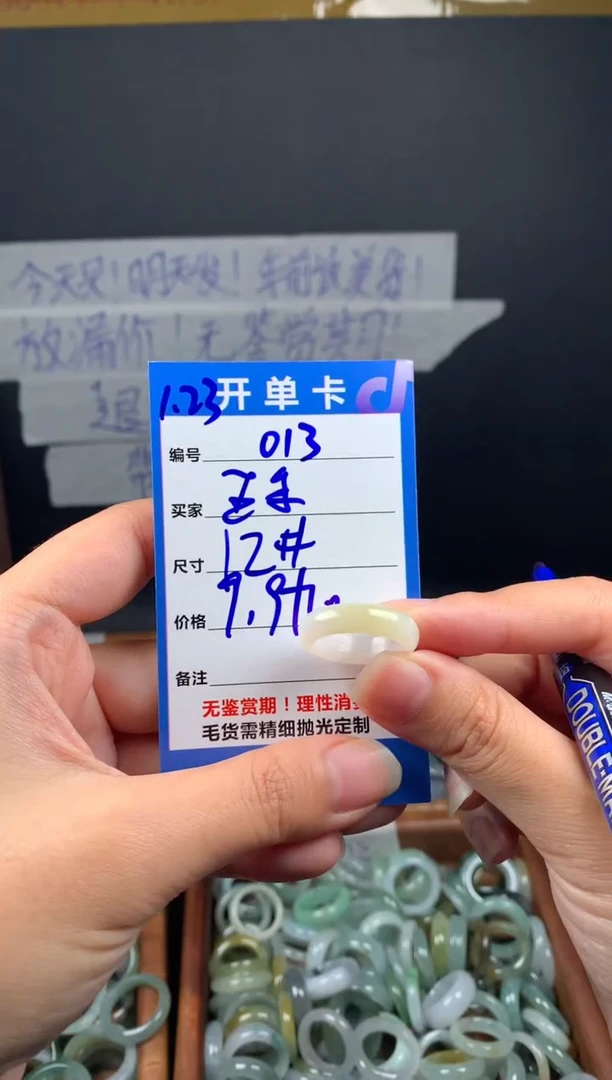 今天只！明天发！年前
放漏价！无鉴赏期！
退
1.23 开单卡
编号 013
买家
尺寸 12#
价格 9.9
备注
无鉴赏期！理性消
毛货需精细抛光定制
DOUBLE-MA